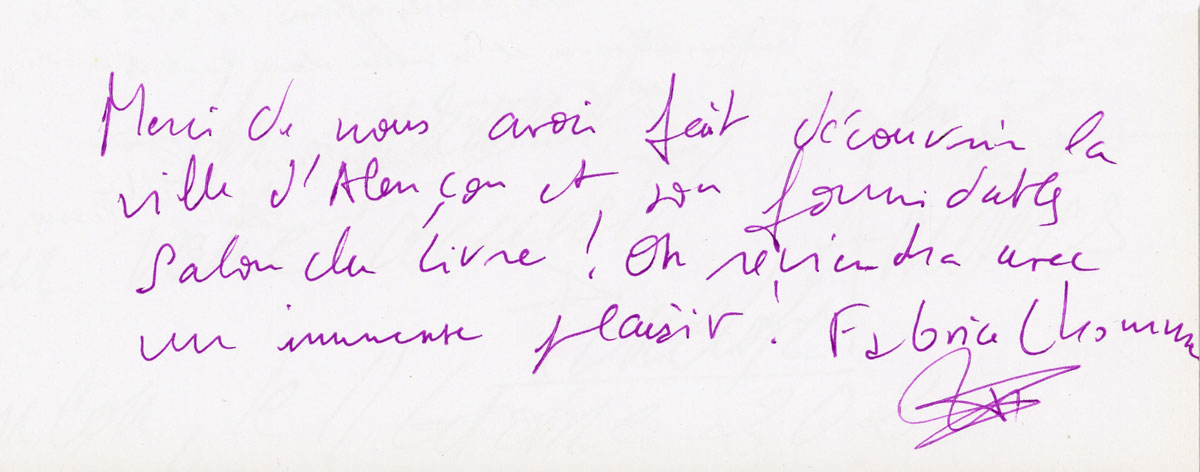 Merci de nous avoir fait découvrir la
ville d'Alençon et son formidable
salon du livre ! On reviendra avec
un immense plaisir ! Fabrice Lhomme